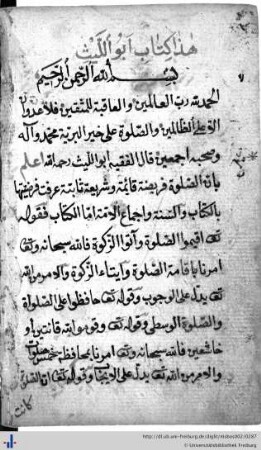 هذا كتاب ابو الليث
بسم الله الرحمن الرحيم
الحمد لله رب العالمين والعاقبة للمتقين فلا عدوان
الا على الظالمين والصلوة على خير البرية محمد وآله
وصحبه اجمعين قال الفقيه ابو الليث رحمه الله اعلم
بان الصلوة فريضة قائمة وشريعة ثابتة عرفت فرضيتها
بالكتاب والسنة واجماع الامة اما الكتاب فقوله
تع اقيموا الصلوة وآتوا الزكوة فالله سبحانه وتع
امرنا باقامة الصلوة وايتاء الزكوة والامر من الله
تع يدل على الوجوب وقوله تع حافظوا على الصلوات
والصلوة الوسطى وقوله تع وقوموا لله قانتين اى
خاشعين فالله سبحانه وتع امرنا بمحافظة خمس صلوات
والامر من الله تع يدل على الايجاب وقوله تع ان الصلوة
كانت
http://dl.ub.uni-freiburg.de/diglit/
© Universitätsbibliothek Freiburg